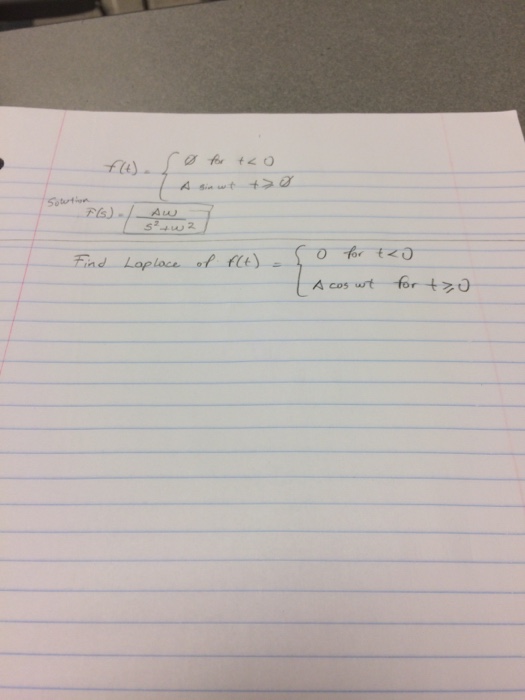 f(t) = { Ø for t<0
A sin wt t ≥ Ø
Solution
F(s) = Aw / s² + w²
Find Laplace of f(t) = { 0 for t<0
A cos wt for t ≥ 0